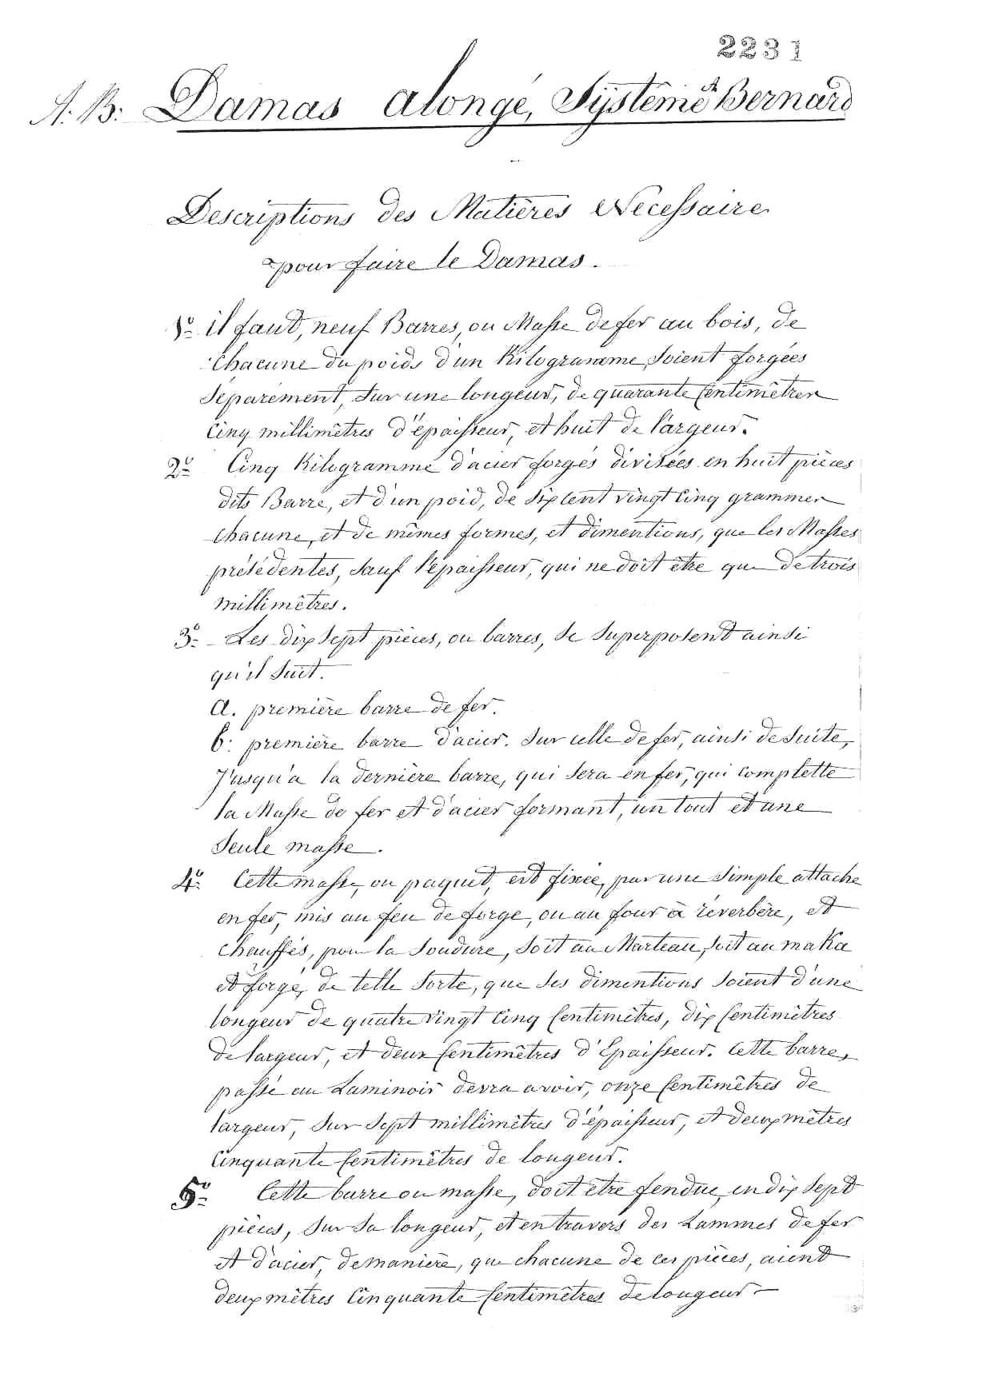 2231
A. B: Damas alongé, Système A Bernard
Descriptions des Matières Necessaire
pour faire le Damas.
1º il faut, neuf Barres, ou Masse de fer au bois, de
chacune du poids d'un Kilogramme, soient forgées
séparément, sur une longeur, de quarante Centimêtres
cinq millimêtres d'épaisseur, et huit de l'argeur.
2º Cinq Kilogramme d'acier forgés divisées en huit pièces
dits Barre, et d'un poid, de six cent vingt cinq grammes
chacune, et de mêmes formes, et dimentions, que les Masses
présédentes, sauf l'épaisseur, qui ne doit être que de trois
millimêtres.
3º Les dix sept pièces, ou barres, se superposent ainsi
qu'il suit.
a. première barre de fer.
b: première barre d'acier. sur celle de fer, ainsi de suite,
J'usqu'a la dernière barre, qui sera en fer, qui complette
la Masse de fer et d'acier formant, un tout et une
seule masse.
4º Cette masse, ou paquet, est fixée, par une simple attache
en fer, mis au feu de forge, ou au four à réverbère, et
chauffés, pour la soudure, soit au Marteau, soit au maka
et forgé, de telle sorte, que ses dimentions soient d'une
longeur de quatre vingt cinq Centimêtres, dix Centimêtres
de largeur, et deux Centimêtres d'Epaisseur. Cette barre,
passé au Laminoir devra avoir, onze Centimêtres de
largeur, sur sept millimêtres d'épaisseur, et deux mêtres
cinquante Centimêtres de longeur.
5º Cette barre ou masse, doit être fendue, en dix sept
pièces, sur sa longeur, et en travers des Lammes de fer
et d'acier, de manière, que chacune de ces pièces, aient
deux mêtres Cinquante Centimêtres de longeur